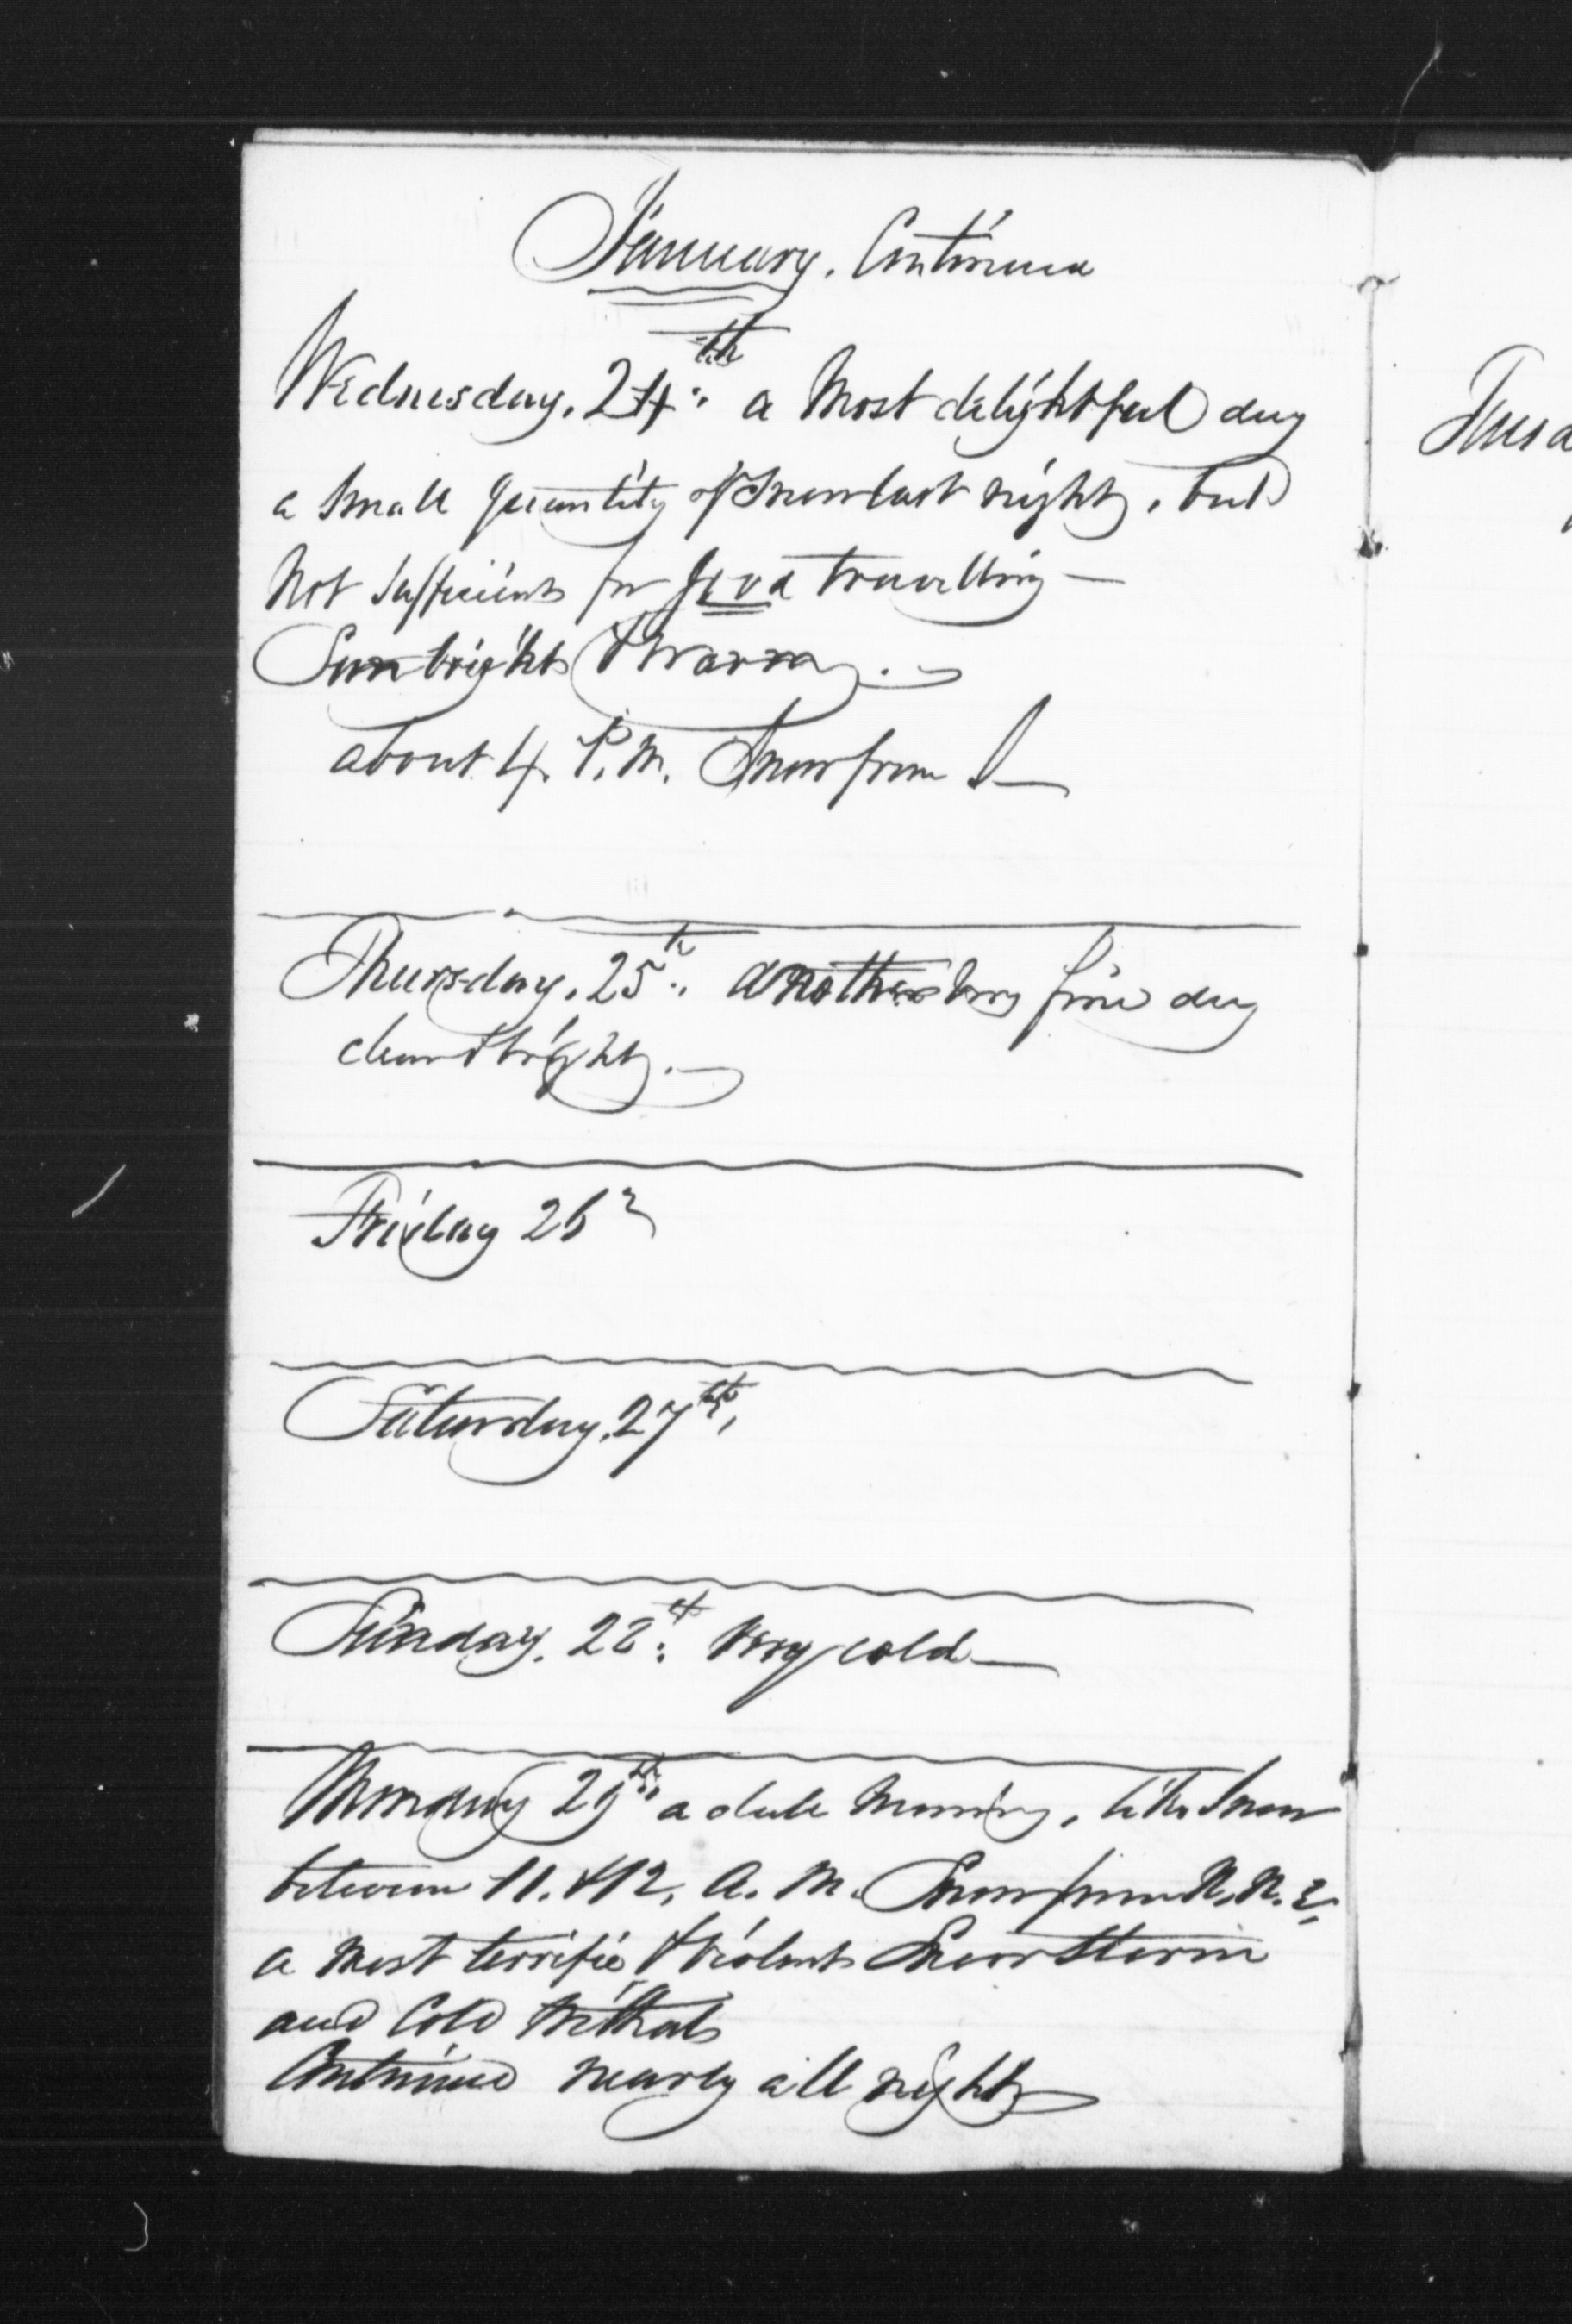 January. Continued
Wednesday. 24th. a Most delightful day
a Small quantity of Snow last night, but
Not Sufficient for good travelling —
Sun bright & Warm. —
about 4. P. M. Snow from S—
Thursday. 25th. another very fine day
clear & bright. —
Friday 26
Saturday. 27th.
Sunday. 28th. Very cold —
Monday 29th. a dull Morning, like Snow
between 11. & 12. A. M. Snow from N. N. E.
a most terrific & Violent Snow Storm
and Cold Withal
Continued nearly all night